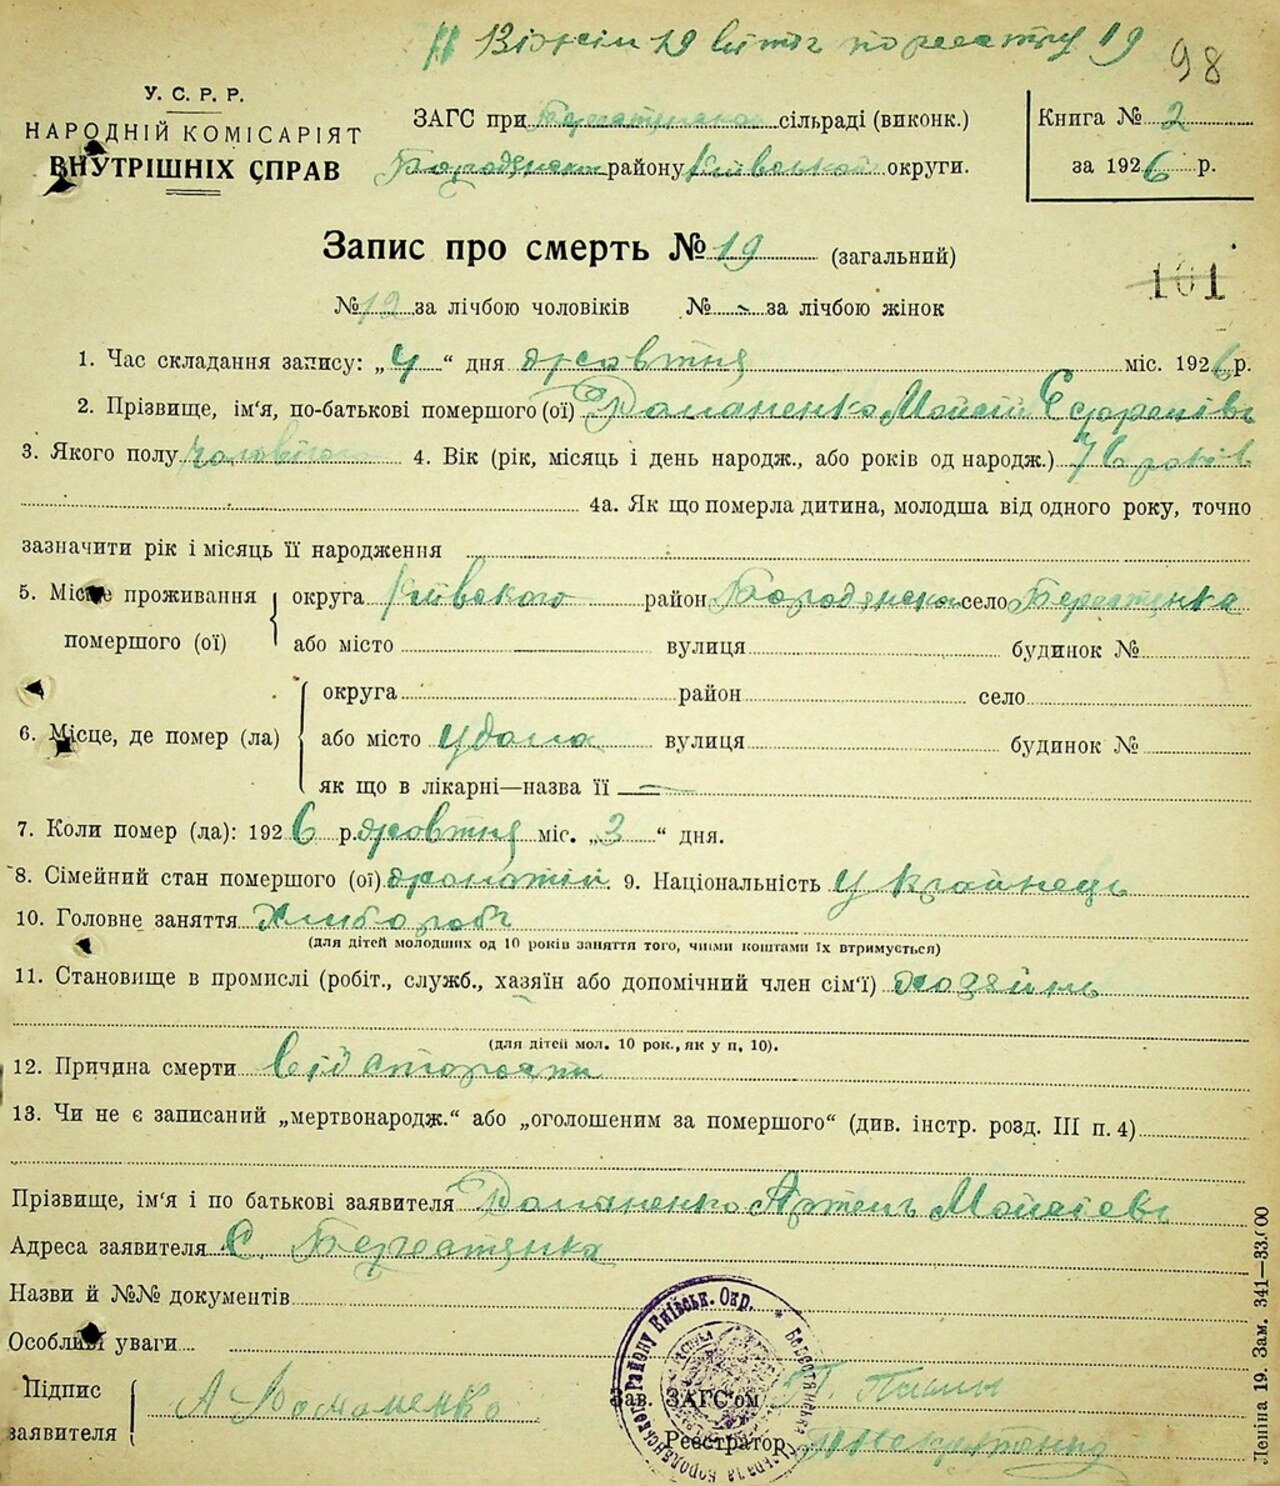 19 по реестру 19
98
У. С. Р. Р.
НАРОДНІЙ КОМІСАРІЯТ
ВНУТРІШНІХ СПРАВ
ЗАГС при сільраді (виконк.)
району Київської округи.
Книга № 2
за 1926 р.
Запис про смерть № 19 (загальний)
101
№ 12 за лічбою чоловіків № - за лічбою жінок
1. Час складання запису: „4“ дня жовтня міс. 1926 р.
2. Прізвище, ім'я, по-батькові помершого (ої) Доманенко Мойсій
3. Якого полу 4. Вік (рік, місяць і день народж., або років од народж.) 76 років
4а. Як що померла дитина, молодша від одного року, точно
зазначити рік і місяць її народження
5. Місце проживання помершого (ої) округа Київского район село
або місто вулиця будинок №
6. Місце, де помер (ла) округа район село
або місто удома вулиця будинок №
як що в лікарні—назва її —
7. Коли помер (ла): 1926 р. жовтня міс. „3“ дня.
8. Сімейний стан помершого (ої) 9. Національність Украйнець
10. Головне заняття Хлибороб
(для дітей молодших од 10 років заняття того, чиїми коштами їх втримується)
11. Становище в промислі (робіт., служб., хазяїн або допомічний член сім'ї) хозяйнь
(для дітей мол. 10 рок., як у п. 10).
12. Причина смерти від старости
13. Чи не є записаний „мертвонародж.“ або „оголошеним за помершого“ (див. інстр. розд. III п. 4)
Прізвище, ім'я і по батькові заявителя Доманенко Артемь Мойсієв
Адреса заявителя С. Берестянка
Назви й №№ документів
Особливі уваги
Підпис заявителя А Доманенко
Зав. ЗАГС'ом
Реєстратор
району Київськ. Окр.
Леніна 19. Зам. 341—33.000